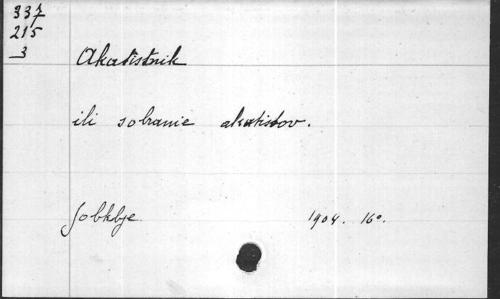 337
215
3
Akatistnik
ili sobranie akatistov.
1904. 16°.